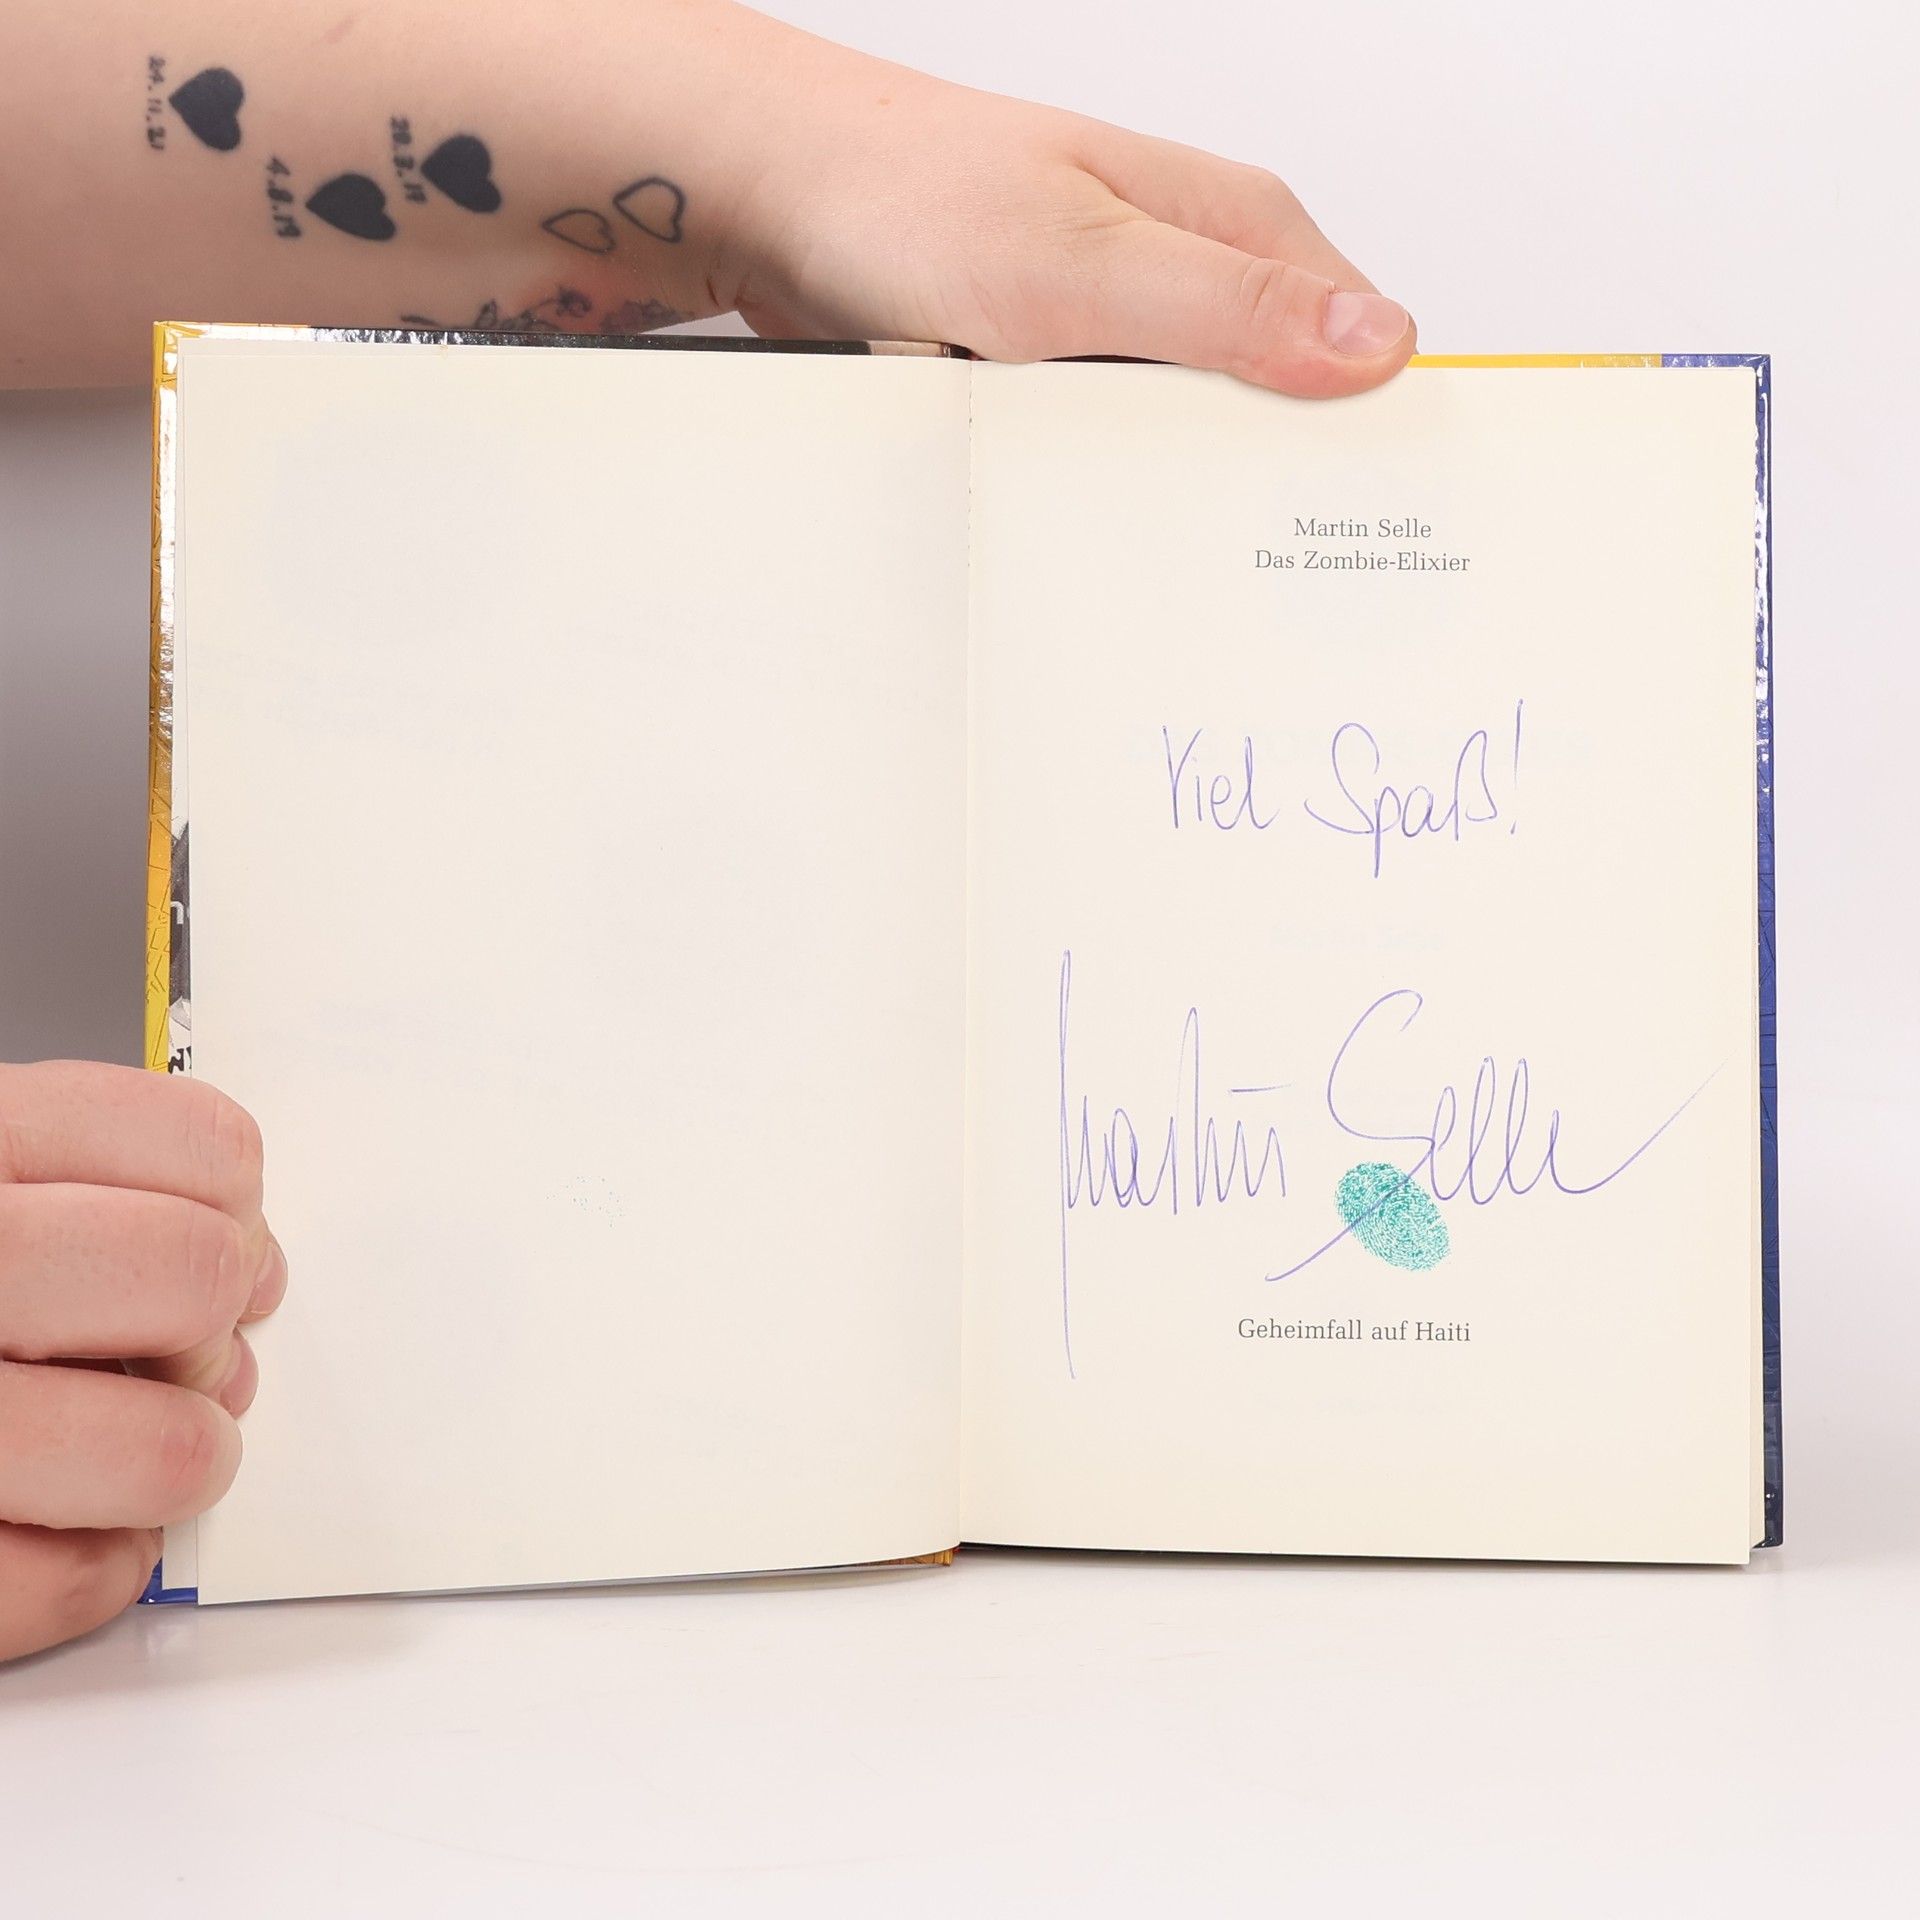 4.8.19
Martin Selle
Das Zombie-Elixier
Viel Spaß!
Martin Selle
Geheimfall auf Haiti